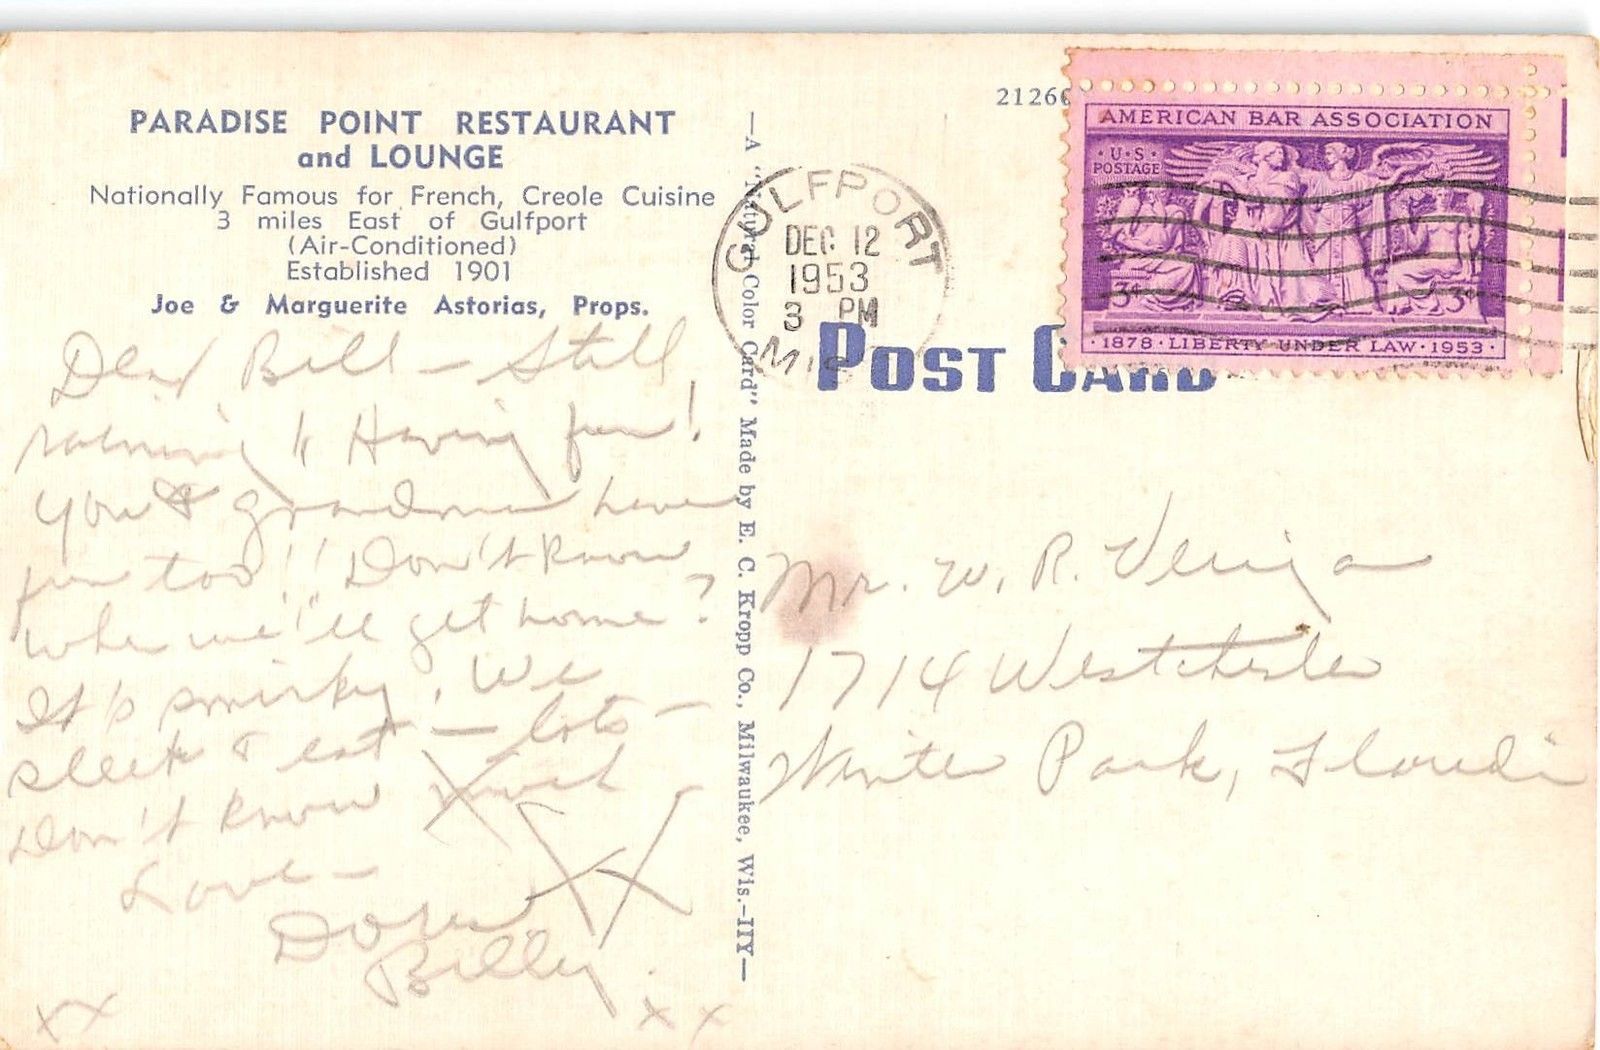 PARADISE POINT RESTAURANT
and LOUNGE
Nationally Famous for French, Creole Cuisine
3 miles East of Gulfport
(Air-Conditioned)
Established 1901
Joe & Marguerite Astorias, Props.
Dear Bill — Still
raining & Having fun!
You & grandma have
fun too!! Don't know
when we'll get home?
It's
sleep & eat — lots —
Don't know much
Love —
Billy
xx
xx
—A "Natural Color Card" Made by E. C. Kropp Co., Milwaukee, Wis.—IIY—
GULFPORT
DEC 12
1953
3 PM
MIS
POST CARD
AMERICAN BAR ASSOCIATION
·U·S·
POSTAGE
3¢ 3¢
·1878·LIBERTY UNDER LAW·1953·
Mr. W. R.
1714 Westchester
Winter Park, Florida